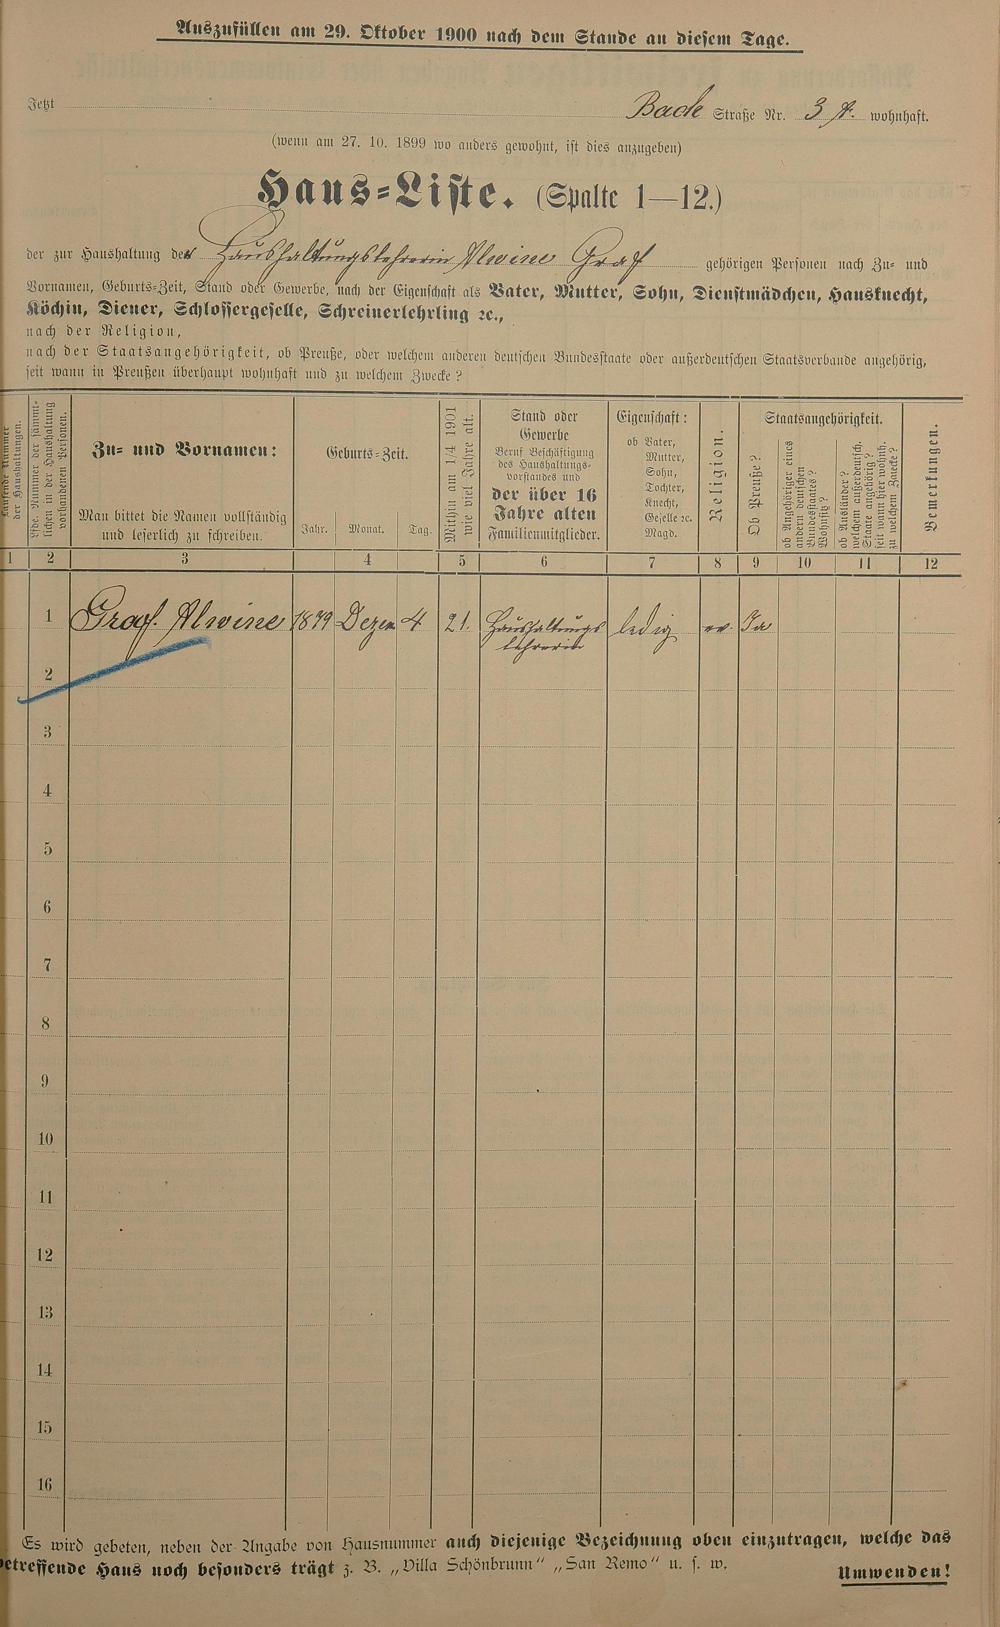 Auszufüllen am 29. Oktober 1900 nach dem Stande an diesem Tage.
Jetzt Bade Straße Nr. 3 wohnhaft.
(wenn am 27. 10. 1899 wo anders gewohnt, ist dies anzugeben)
Haus-Liste. (Spalte 1—12.)
der zur Haushaltung der Haushaltungslehrerin Alwine Graf gehörigen Personen nach Zu- und
Vornamen, Geburts-Zeit, Stand oder Gewerbe, nach der Eigenschaft als Vater, Mutter, Sohn, Dienstmädchen, Hausknecht,
Köchin, Diener, Schlossergeselle, Schreinerlehrling ꝛc.,
nach der Religion,
nach der Staatsangehörigkeit, ob Preuße, oder welchem anderen deutschen Bundesstaate oder außerdeutschen Staatsverbande angehörig,
seit wann in Preußen überhaupt wohnhaft und zu welchem Zwecke?
Laufende Nummer
der Haushaltungen.
Lfde. Nummer der sämmt-
lichen in der Haushaltung
vorhandenen Personen.
Zu- und Vornamen:
Man bittet die Namen vollständig
und leserlich zu schreiben.
Geburts-Zeit.
Jahr. Monat. Tag.
Mithin am 1/4 1901
wie viel Jahre alt.
Stand oder
Gewerbe
Beruf Beschäftigung
des Haushaltungs-
vorstandes und
der über 16
Jahre alten
Familienmitglieder.
Eigenschaft:
ob Vater,
Mutter,
Sohn,
Tochter,
Knecht,
Geselle ꝛc.
Magd.
Religion.
Staatsangehörigkeit.
Ob Preuße?
ob Angehöriger eines
andern deutschen
Bundesstaates?
Wohnsitz?
ob Ausländer?
welchem außerdeutsch.
Staate angehörig?
seit wann hier wohnh.
zu welchem Zwecke?
Bemerkungen.
1 2 3 4 5 6 7 8 9 10 11 12
1 Graf. Alwine 1879 Dezem 4 21. Haushaltungs ledig ev. Ja
lehrerin
2
3
4
5
6
7
8
9
10
11
12
13
14
15
16
Es wird gebeten, neben der Angabe von Hausnummer auch diejenige Bezeichnung oben einzutragen, welche das
betreffende Haus noch besonders trägt z. B. „Villa Schönbrunn“ „San Remo“ u. s. w.
Umwenden!